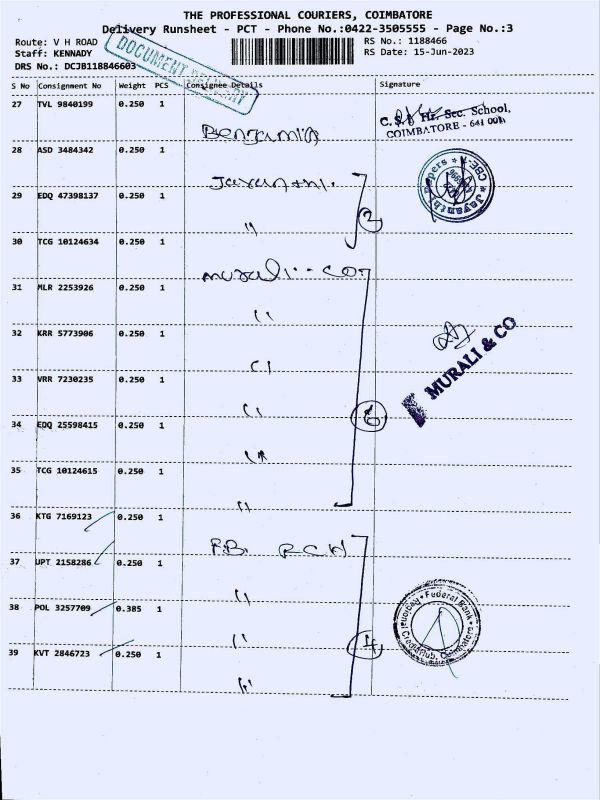 THE PROFESSIONAL COURIERS, COIMBATORE
Delivery Runsheet - PCT - Phone No.:0422-3505555 - Page No.:3
Route: V H ROAD
Staff: KENNADY
DRS No.: DCJB118846603
DOCUMENT DELIVERY
RS No.: 1188466
RS Date: 15-Jun-2023
S No Consignment No Weight PCS Consignee Details Signature
27 TVL 9840199 0.250 1
Benjamin
C.S.I. Hr. Sec. School,
COIMBATORE - 641 001
28 ASD 3484342 0.250 1
Jayanthi. 2
Jayanth Papers * CBE- *
29 EDQ 47398137 0.250 1
"
30 TCG 10124634 0.250 1
murali - co
31 MLR 2253926 0.250 1
"
32 KRR 5773906 0.250 1
"
MURALI & CO
33 VRR 7230235 0.250 1
"
6
34 EDQ 25598415 0.250 1
"
35 TCG 10124615 0.250 1
"
36 KTG 7169123 0.250 1
F.B. RCH
37 UPT 2158286 0.250 1
"
Federal Bank * Regional Credit Hub, Coimbatore
38 POL 3257709 0.385 1
"
4
39 KVT 2846723 0.250 1
"